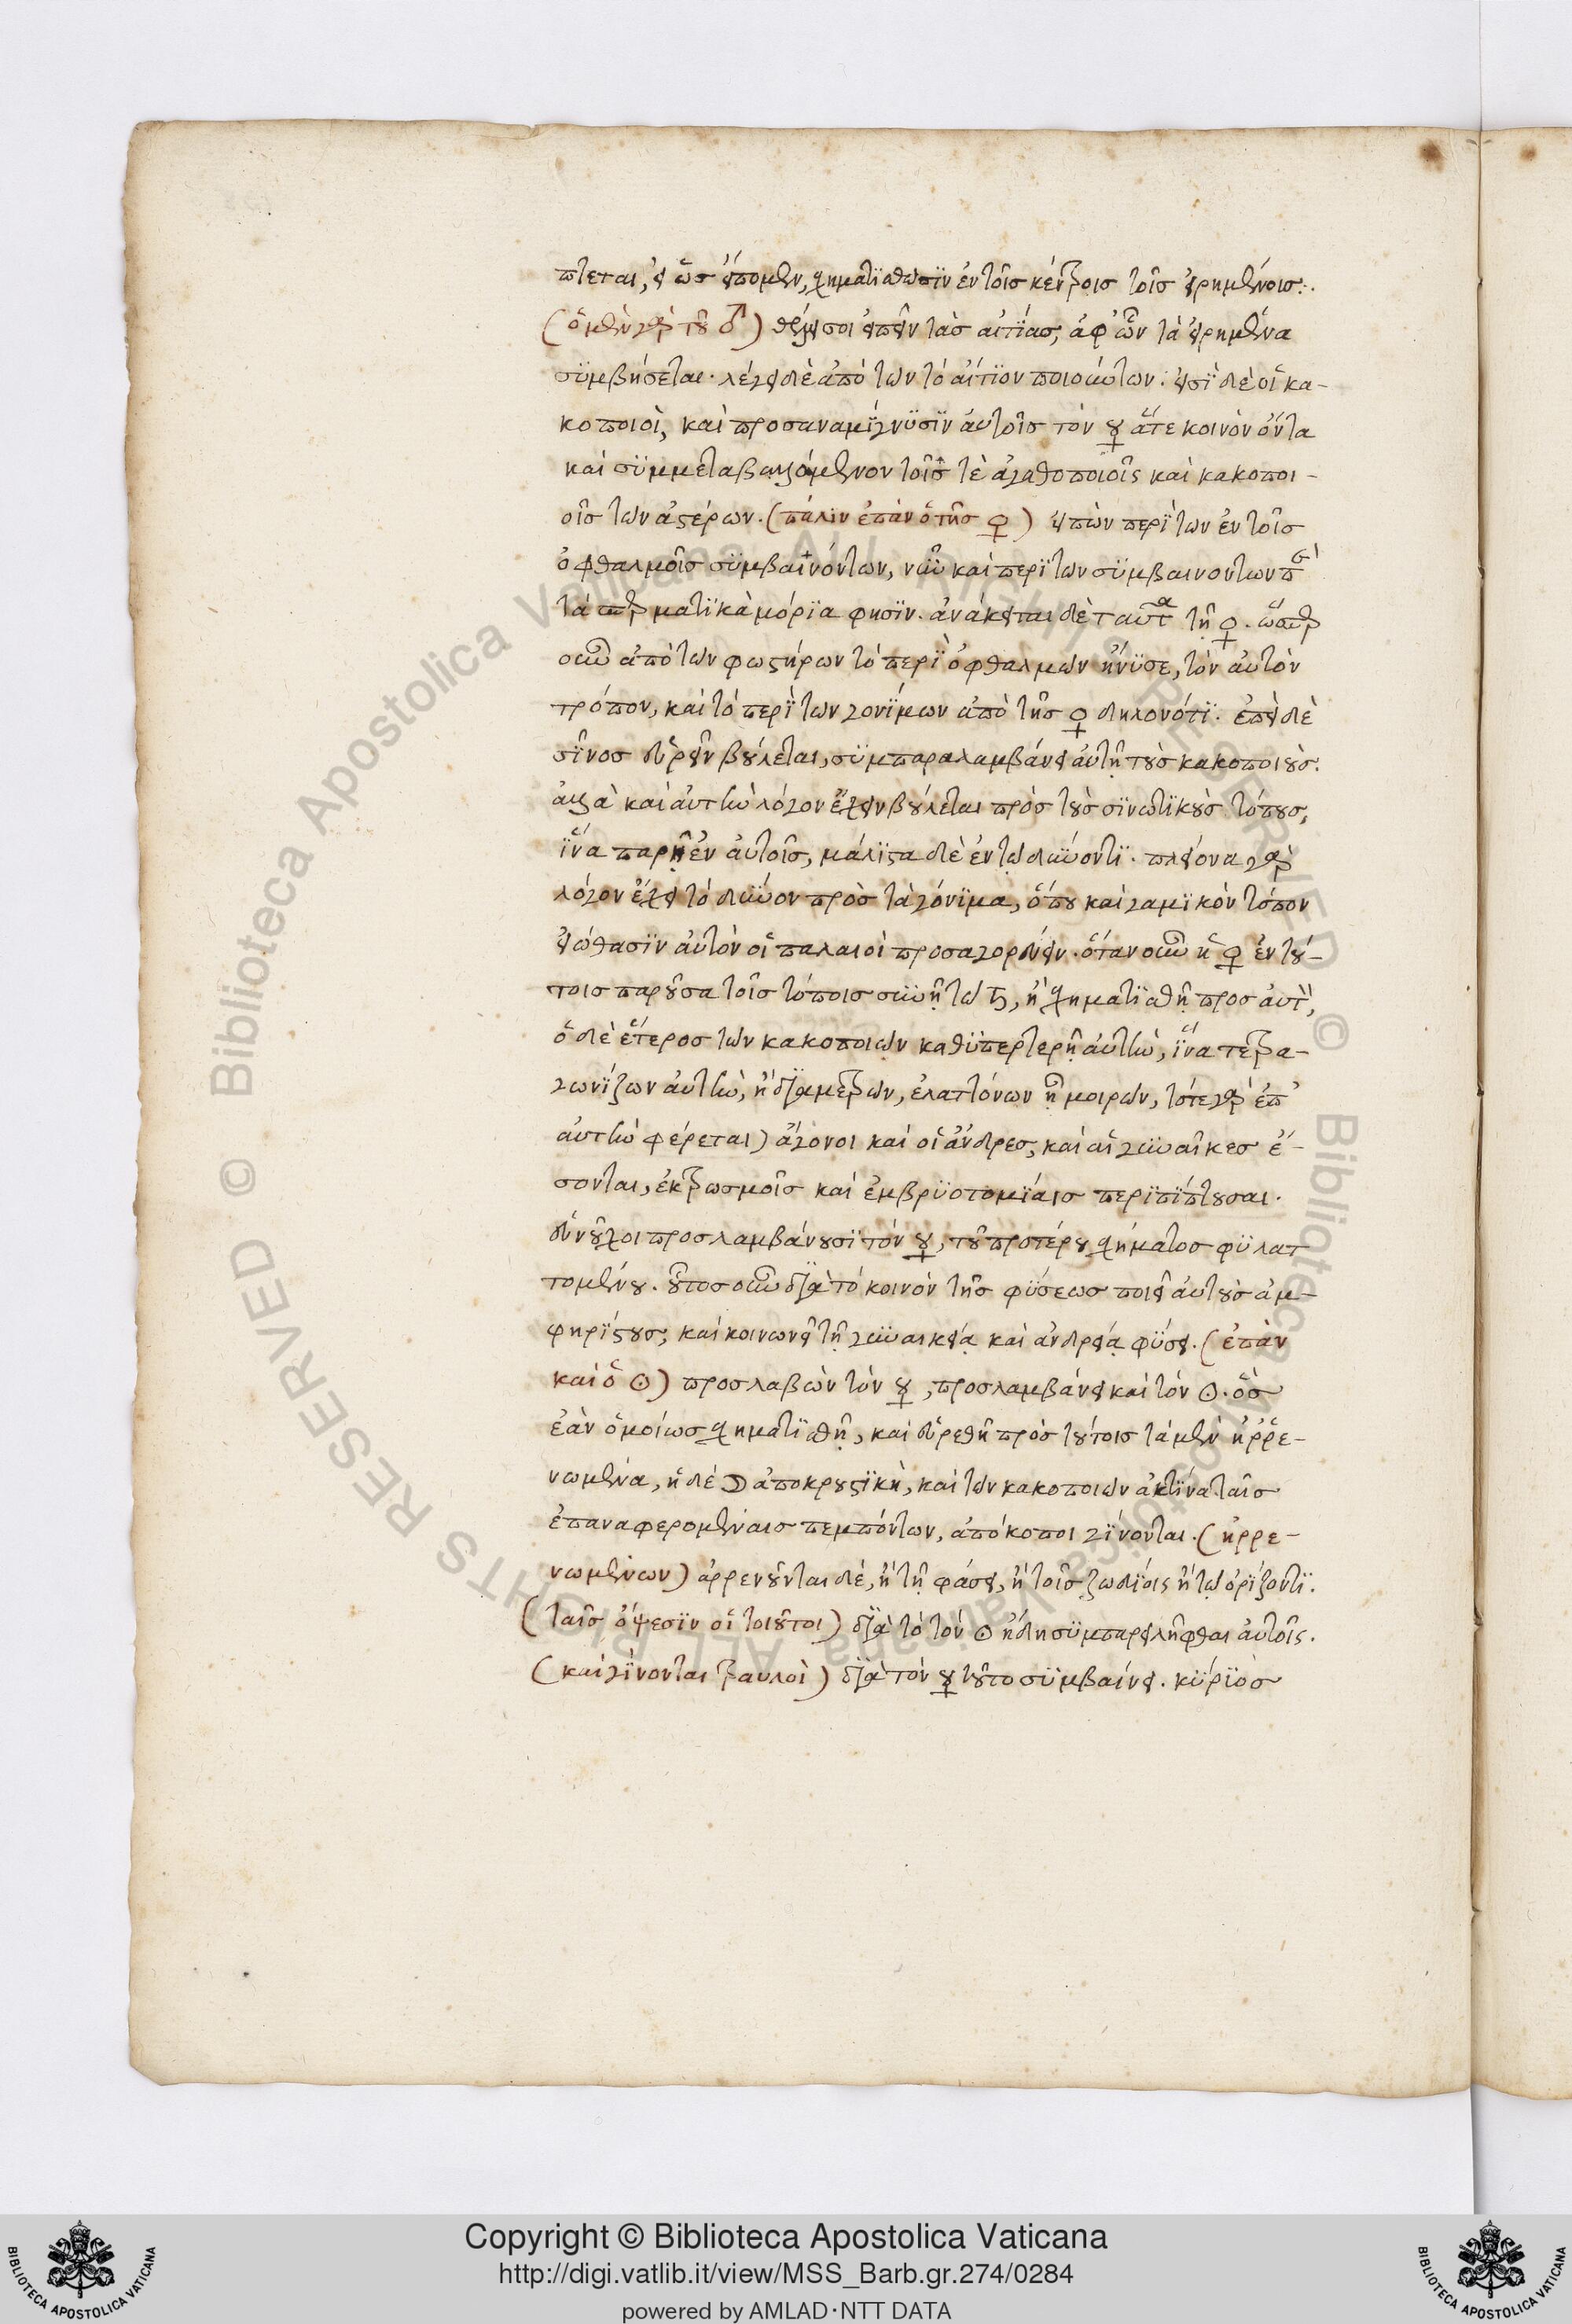 πτεται, εἰ ὡς εἴπομεν, σχηματϊσθῶσϊν ἐν τοῖς κέντροις τοῖς εἰρημένοις:.
(ὁ μὲν γὰρ τοῦ ♂) θέλει σοι εἰπεῖν τὰς αἰτίας, ἀφ' ὧν τὰ εἰρημένα
σϋμβήσεται. λέγει δὲ ἀπὸ τῶν τὸ αἴτϊον ποιούντων. εἰσὶ δὲ οἱ κα-
κοποιοὶ, καὶ προσαναμίγνϋσϊν αὐτοῖς τὸν ☿ ἅτε κοινὸν ὄντα
καὶ σϋμμεταβαλλόμενον τοῖς τὲ ἀγαθοποιοῖς καὶ κακοποι-
οῖς τῶν ἀστέρων. (πάλιν ἐπὰν ὁ τῆς ♀) εἰπὼν περὶ τῶν ἐν τοῖς
ὀφθαλμοῖς σϋμβαινόντων, νῦν καὶ περὶ τῶν σϋμβαινόντων π
τὰ σπερματϊκὰ μόρϊα φησὶν. ἀνάκειται δὲ ταῦτα τῇ ♀. ὥσπερ
οὖν ἀπὸ τῶν φωστήρων τὸ περὶ ὀφθαλμῶν ἤνϋσε, τὸν αὐτὸν
τρόπον, καὶ τὸ περὶ τῶν γονίμων ἀπὸ τῆς ♀ δηλονότϊ. ἐπεὶ δὲ
σῖνος εὑρεῖν βούλεται, σϋμπαραλαμβάνει αὐτῇ τοὺς κακοποιοὺς.
ἀλλὰ καὶ αὐτὴν λόγον ἔχειν βούλεται πρὸς τοὺς σϊνωτϊκοὺς τόπους,
ἵνα παρῇ ἐν αὐτοῖς, μάλϊστα δὲ ἐν τῷ δύνοντϊ. πλείονα γὰρ
λόγον ἔχει τὸ δῦνον πρὸς τὰ γόνϊμα, ὅπου καὶ γαμϊκὸν τόπον
εἰώθασϊν αὐτὸν οἱ παλαιοὶ προσαγορεύειν. ὅταν οὖν ἡ ♀ ἐν τού-
τοις παροῦσα τοῖς τόποις σϋνῇ τῷ ♄, ἢ σχηματϊσθῇ προς αὐτὸν,
ὁ δὲ ἕτερος τῶν κακοποιῶν καθϋπερτερῇ αὐτὴν, ἵνα τετρα-
γωνίζων αὐτὴν, ἢ διαμετρῶν, ἐλαττόνων ᾖ μοιρῶν, τότε γὰρ ἐπ'
αὐτὴν φέρεται) ἄγονοι καὶ οἱ ἄνδρες, καὶ αἱ γϋναῖκες ἔ-
σονται, ἐκτρωσμοῖς καὶ ἐμβρϋοτομίαις περϊπίπτουσαι.
εὐνοῦχοι προσλαμβάνουσϊ τὸν ☿, τοῦ προτέρου σχήματος φϋλατ
τομένου. οὗτος οὖν διὰ τὸ κοινὸν τῆς φύσεως ποιεῖ αὐτοὺς ἀμ-
φηρίστους, καὶ κοινωνεῖ τῇ γϋναικείᾳ καὶ ἀνδρείᾳ φύσει. (ἐπὰν
καὶ ὁ ☉) προσλαβὼν τὸν ☿, προσλαμβάνει καὶ τὸν ☉. ὃς
ἐὰν ὁμοίως σχηματϊσθῇ, καὶ εὑρεθῇ πρὸς τούτοις τὰ μὲν ἠῤῥε-
νωμένα, ἡ δὲ ☽ ἀποκρουστϊκὴ, καὶ τῶν κακοποιῶν ἀκτῖνα ταῖς
ἐπαναφερομέναις πεμπόντων, ἀπόκοποι γίνονται. (ἠρρε-
νωμένων) ἀρρενοῦνται δὲ, ἢ τῇ φάσει, ἢ τοῖς ζωδίοις ἢ τῷ ὁρίζοντϊ.
(ταῖς ὄψεσϊν οἱ τοιοῦτοι) διὰ τὸ τὸν ☉ ἤδη σϋμπαρειλῆφθαι αὐτοῖς.
(καὶ γίνονται τραυλοὶ) διὰ τὸν ☿ τοῦτο σϋμβαίνει. κύρϊος
Copyright © Biblioteca Apostolica Vaticana
http://digi.vatlib.it/view/MSS_Barb.gr.274/0284
powered by AMLAD·NTT DATA